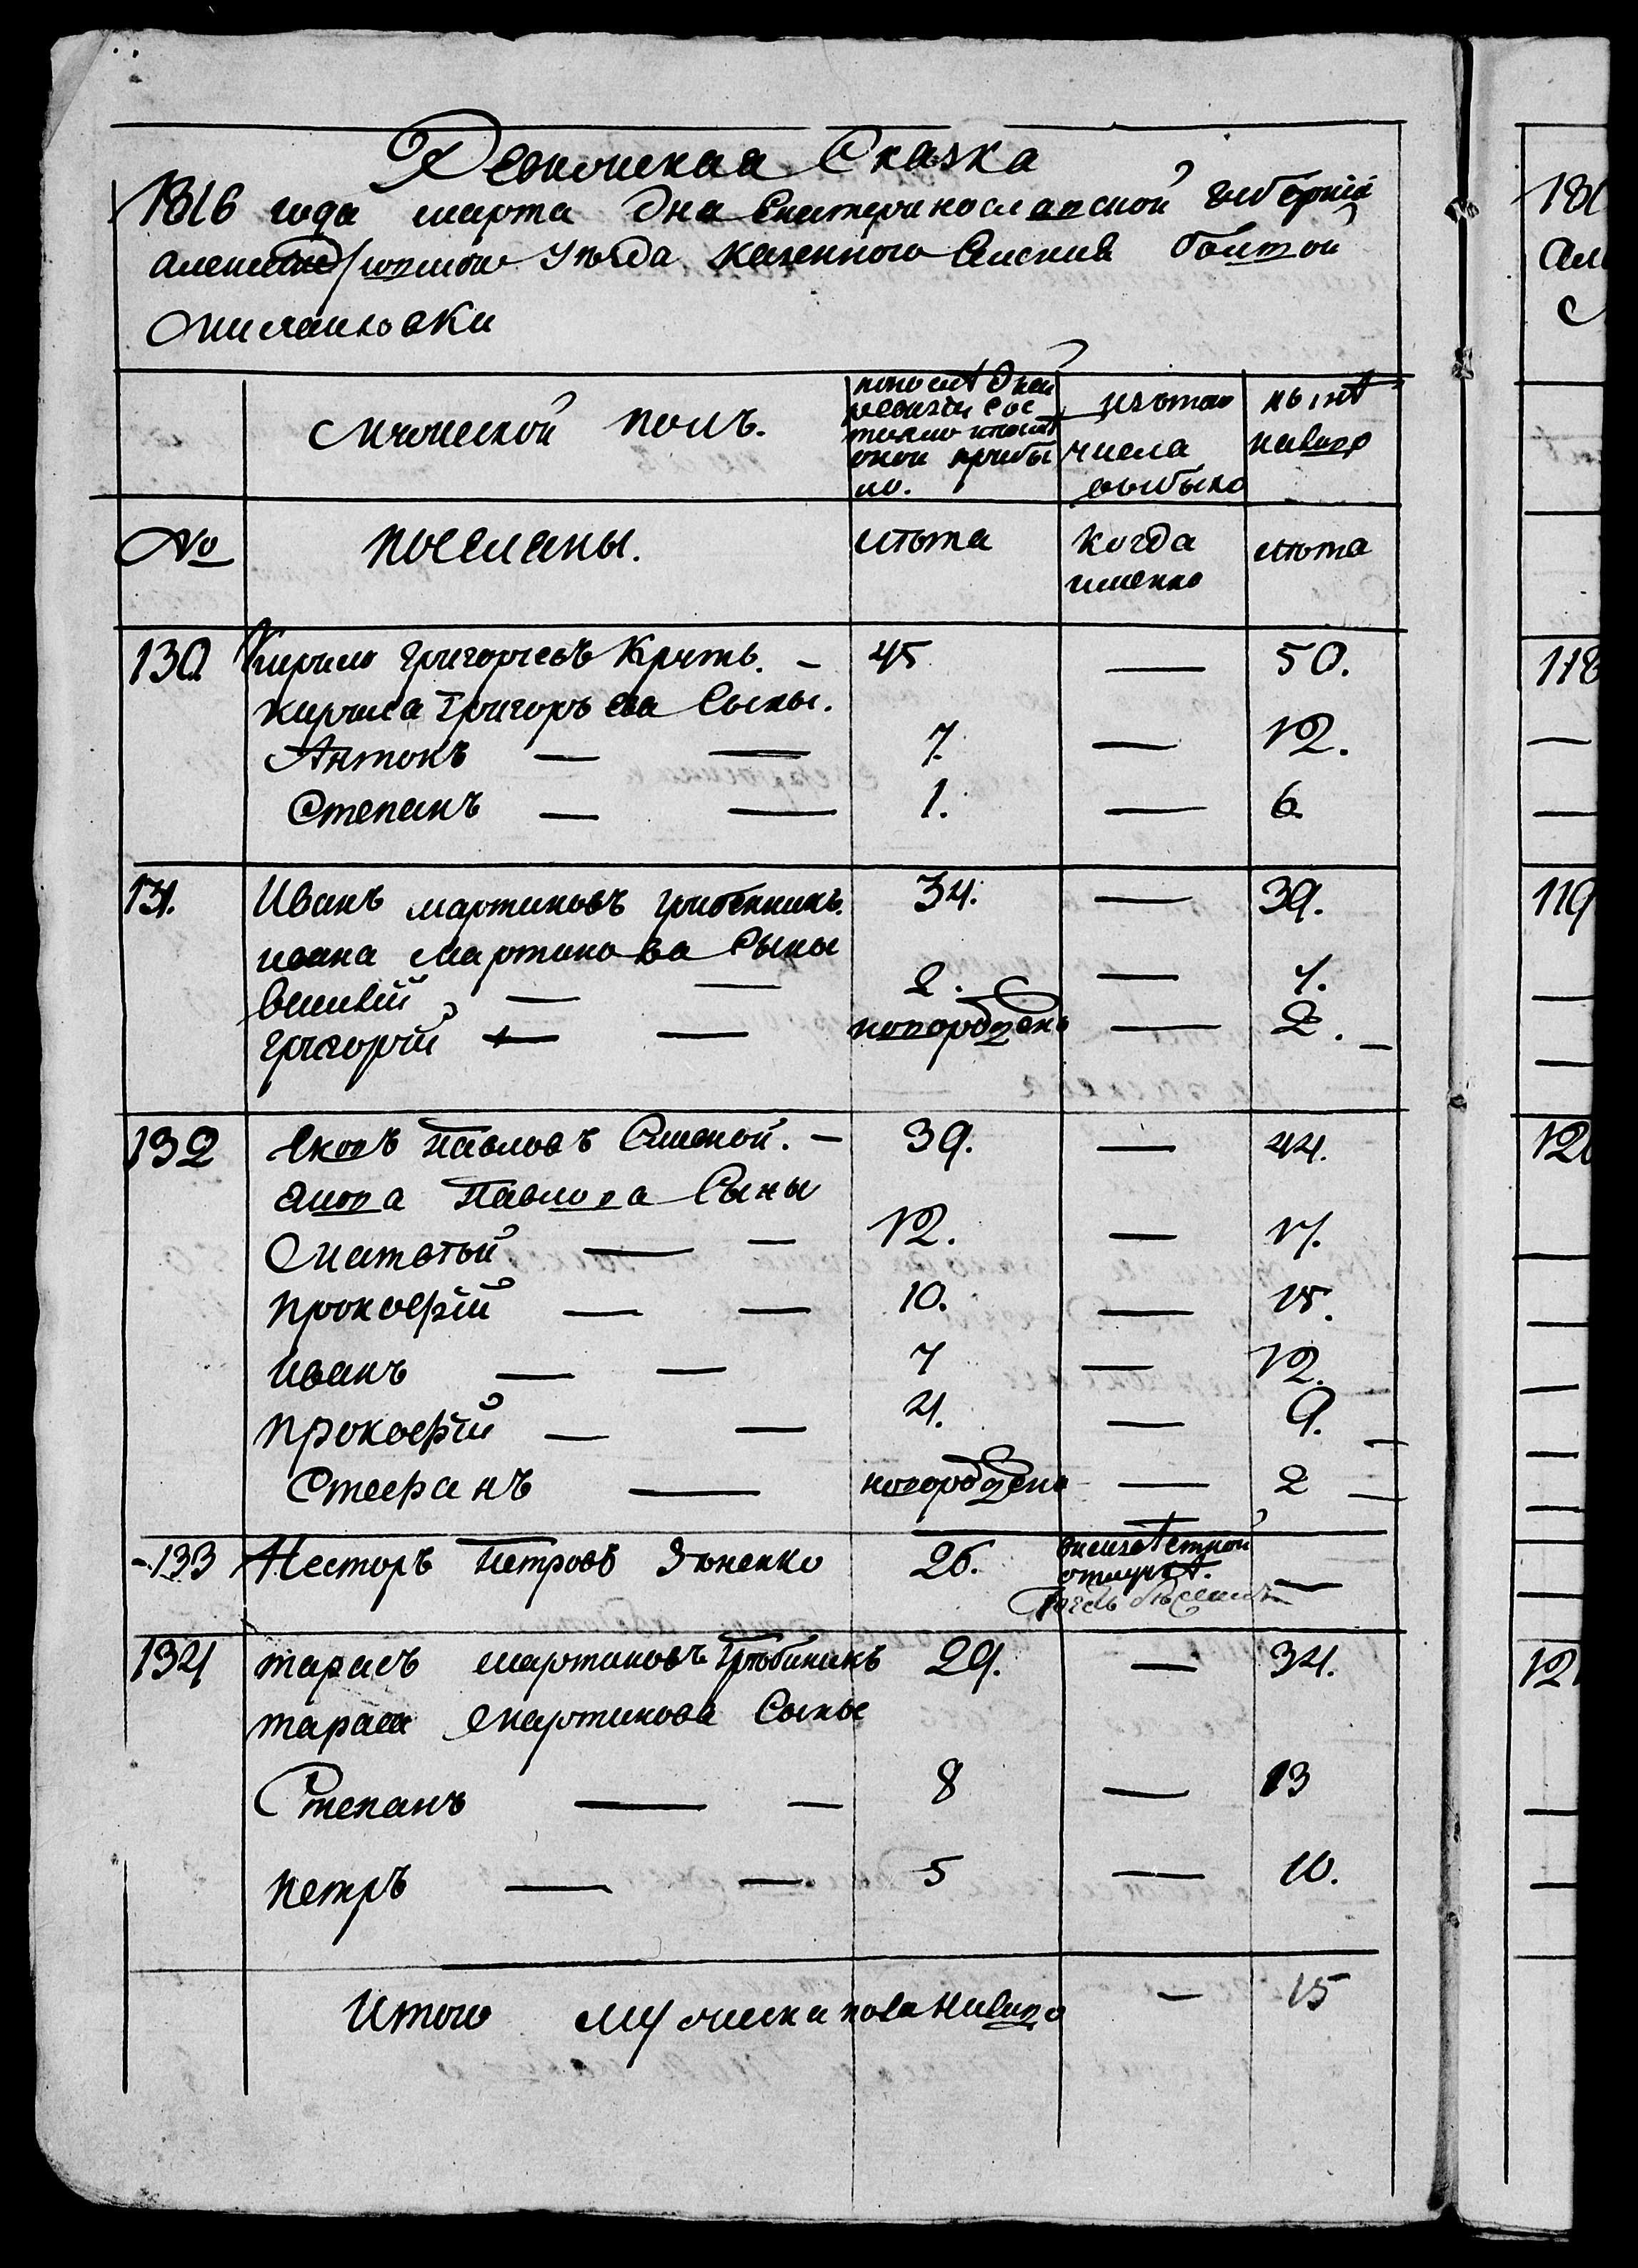 Ревижская Сказка
1816 года марта дня Екатеринославской губернїи
Александровского уезда казенного Селения Болшой
Михайловки
Мужеской полъ.
по последней ревизїи состояло и после оной прибыло.
изъ того числа выбыло
ныне налицо
№
поселяны.
лета
когда именно
лета
130 Кирило Григорьевъ Круть. — 45 — 50.
Кирила Григорьева Сыны.
Антонъ — — 7. — 12.
Степанъ — — 1. — 6
131. Иванъ мартиновъ Гребенникъ. 34. — 39.
ивана Мартинова Сыны
— — 2. — 7.
григорїй — — новорожденъ — 2. —
132 Яковъ Павловъ — 39. — 44.
Якова Павлова Сыны
— — 12. — 17.
прокофїй — — 10. — 15.
Иванъ — — 7 — 12.
прокофїй — — 4. — 9. —
Стефанъ — новорожденъ — 2 —
133 Несторъ Петровъ Зюненко 26. —
134 тарасъ мартиновъ Гребиникъ 29. — 34.
тараса Мартинова Сыны
Степанъ — — 8 — 13
петръ — — 5 — 10.
Итого мужеска пола налицо — 15
180
118
119
120
121